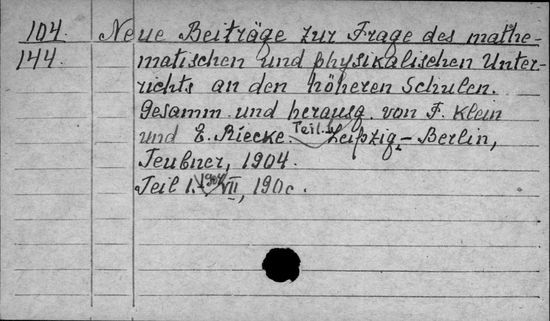 104. Neue Beiträge zur Frage des mathe-
144. matischen und physikalischen Unter-
richts an den höheren Schulen.
Gesamm. und herausg. von F. Klein
und E. Riecke. Teil 1 Leipzig - Berlin,
Teubner, 1904.
Teil 1. 1904 VII, 190 c.